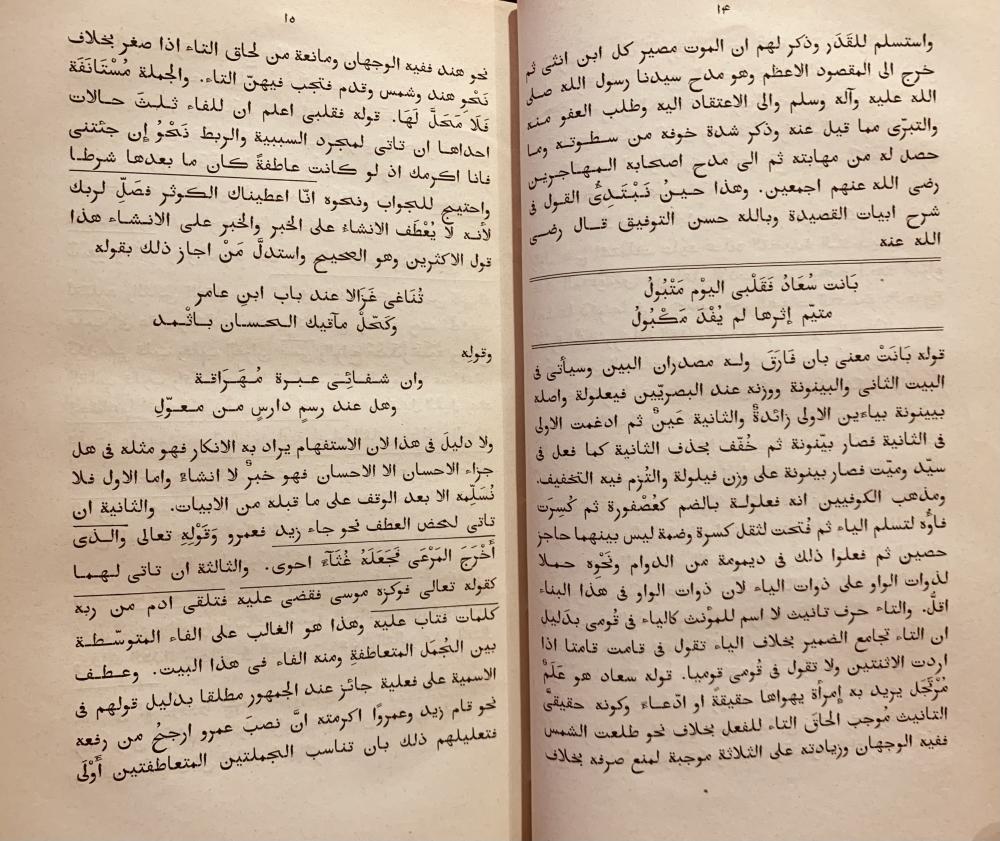 ١٤
واستسلم للقَدَر وذكر لهم ان الموت مصير كل ابن انثى ثم
خرج الى المقصود الاعظم وهو مدح سيدنا رسول الله صلى
الله عليه وآله وسلم والى الاعتقاد اليه وطلب العفو منه
والتبرّى مما قيل عنه وذكر شدة خوفه من سطوته وما
حصل له من مهابته ثم الى مدح اصحابة المهاجرين
رضى الله عنهم اجمعين. وهذا حينُ نَبْتَدِىُٔ القول فى
شرح ابيات القصيدة وبالله حسن التوفيق قال رضى
الله عنه
بَانت سُعَادُ فَقَلْبى اليوْم مَتْبُولُ
متيّم إثرها لم يُفْدَ مَكْبُولُ
قوله بَانَتْ معنى بان فَارَقَ وله مصدران البين وسيأتى فى
البيت الثانى والبينونة ووزنه عند البصريّين فيعلولة واصله
بييينونة بياءين الاولى زائدةٌ والثانية عَينٌ ثم ادغمت الاولى
فى الثانية فصار بيّنونة ثم خُفّف بحذف الثانية كما فعل فى
سيّد وميّت فصار بينونة على وزن فيلولة والتُزم فيه التخفيف.
ومذهب الكوفيين انه فعلولة بالضم كعُصْفورة ثم كُسِرَت
فاؤُه لتسلم الياء ثم فُتحت لثقل كسرة وضمة ليس بينهما حاجز
حصين ثم فعلوا ذلك فى ديمومة من الدوام ونَحْوِه حملا
لذوات الواو على ذوات الياء لان ذوات الواو فى هذا البناء
اقلُّ. والتاء حرف تانيث لا اسم للمؤنث كالياء فى قومى بدَليل
ان التاء تجامع الضمير بخلاف الياء تقول فى قامت قامتا اذا
اردت الاثنتين ولا تقول فى قُومى قوميا. قوله سعاد هو عَلَمٌ
مُرْتَجَل يريد به إمرأة يهواها حقيقةً او ادّعاء وكونه حقيقىَّ
التانيث مُوجب الحاقَ التاء للفعل بخلاف نحو طلعت الشمس
ففيه الوجهان وزيادته على الثلاثة موجبة لمنع صرفه بخلاف
١٥
نحو هند ففيه الوجهان ومانعة من لحاق التاء اذا صغر بخلاف
نَحْوِ هند وشمس وقدم فتجب فيهنّ التاء. والجملة مُسْتَانَفَة
فَلَا مَحَلَّ لَهَا. قوله فقلبى اعلم ان للفاء ثلث حالات
احداها ان تاتى لمجرد السببية والربط نَحْوُ إن جئتنى
فانا اكرمك اذ لو كانت عاطفةً كان ما بعدها شرطا
واحتيج للجواب ونحوه انّا اعطيناك الكوثر فصَلِّ لربك
لأنه لا يُعْطَف الانشاءُ على الخبر والخبر على الانشاء هذا
قول الاكثرين وهو الصحيح واستدلَّ مَنْ اجاز ذلك بقوله
تُنَاغى غَزَالا عند باب ابنِ عامر
وكَحّلْ مآقيك الحسان باثْمد
وقوله
وان شفائى عبرة مُهَرَاقة
وهل عند رسمٍ دارسٍ من معوّلِ
ولا دليلَ فى هذا لان الاستفهام يراد به الانكار فهو مثله فى هل
جزاء الاحسان الا الاحسان فهو خبرٌ لا انشاءٌ واما الاول فلا
نُسَلّمه الا بعد الوقف على ما قبله من الابيات. والثانية ان
تاتى لمحض العطف نحو جاء زيد فعمرو وَقَوْلِهِ تعالى والذى
أَخْرَجَ المَرْعَى فَجَعَلَهُ غُثَآءً احوى. والثالثة ان تاتى لهما
كقوله تعالى فوكزه موسى فقضى عليه فتلقى ادم من ربه
كلمات فتاب عليه وهذا هو الغالب على الفاء المتوسّطة
بين الجُمَل المتعاطفةِ ومنه الفاء فى هذا البيت. وعطف
الاسمية على فعلية جائز عند الجمهور مطلقا بدليل قولهم فى
نحو قام زيد وعمروًا اكرمته انَّ نصبَ عمرو ارجحُ من رفعه
فتعليلهم ذلك بان تناسب الجملتين المتعاطفتين أَوْلَى